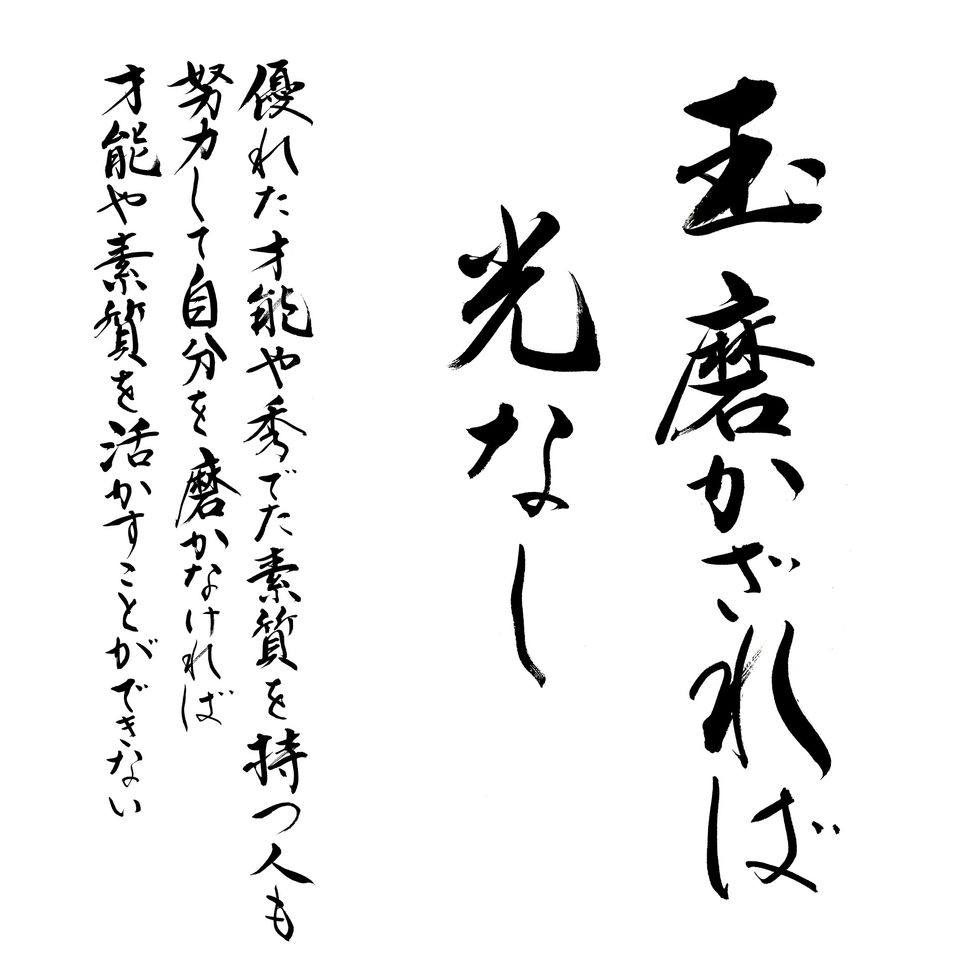 玉磨かざれば
光なし
優れた才能や秀でた素質を持つ人も
努力して自分を磨かなければ
才能や素質を活かすことができない